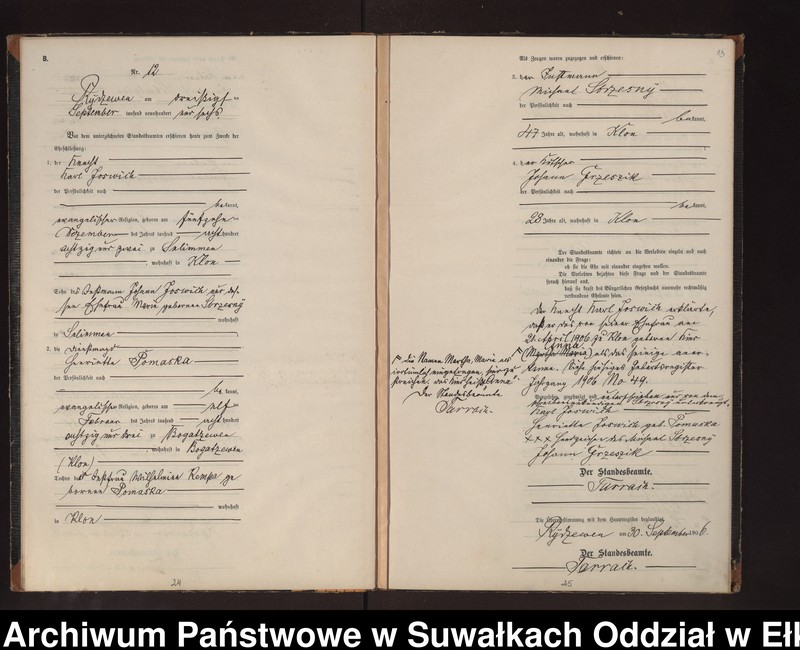 B.
Nr. 12
Rydzewen am dreißigsten
September tausend neunhundert und sechs
Vor dem unterzeichneten Standesbeamten erschienen heute zum Zwecke der
Eheschließung:
1. der Knecht
Karl Joswich
der Persönlichkeit nach
bekannt,
evangelischer Religion, geboren am fünfzehnten
Dezember des Jahres tausend acht hundert
achtzig und zwei zu Salimmen
, wohnhaft in Klon
Sohn des Instmann Johann Joswich und des-
sen Ehefrau Maria geborenen Sorzesny
wohnhaft
in Salimmen
2. die Dienstmagd
Henriette Pomaska
der Persönlichkeit nach
bekannt,
evangelischer Religion, geboren am elf
Februar des Jahres tausend acht hundert
achtzig und drei zu Bogatzewen
, wohnhaft in Bogatzewen
(Klon)
Tochter der Instfrau Wilhelmine Rompa ge
borenen Pomaska
wohnhaft
in Klon
24
13
Als Zeugen waren zugezogen und erschienen:
3. der Instmann
Michael Sorzesny
der Persönlichkeit nach
bekannt,
47 Jahre alt, wohnhaft in Klon
4. der Kutscher
Johann Grzeszik
der Persönlichkeit nach
bekannt,
28 Jahre alt, wohnhaft in Klon
Der Standesbeamte richtete an die Verlobten einzeln und nach
einander die Frage:
ob sie die Ehe mit einander eingehen wollen.
Die Verlobten bejahten diese Frage und der Standesbeamte
sprach hierauf aus,
daß sie kraft des Bürgerlichen Gesetzbuchs nunmehr rechtmäßig
verbundene Eheleute seien.
Der Knecht Karl Joswich erklärte,
daß er das von seiner Ehefrau am
21. April 1906 zu Klon geborene Kind
Anna
(Martha Maria) als das seinige aner-
kenne. Siehe hiesiges Geburtsregister
Jahrgang 1906 No 49.
die Namen Martha, Maria als
irrtümlich eingetragen, sind zu
streichen, das Kind heißt "Anna".
Der Standesbeamte
Tarrach.
Vorgelesen, genehmigt und
Karl Joswich
Henriette Joswich geb. Pomaska
+++ Handzeichen des Michael Sorzesny
Johann Grzeszik
Der Standesbeamte.
Tarrach.
Die Übereinstimmung mit dem Hauptregister beglaubigt
Rydzewen am 30. September 1906.
Der Standesbeamte.
Tarrach.
25
Archiwum Państwowe w Suwałkach Oddział w Ełk